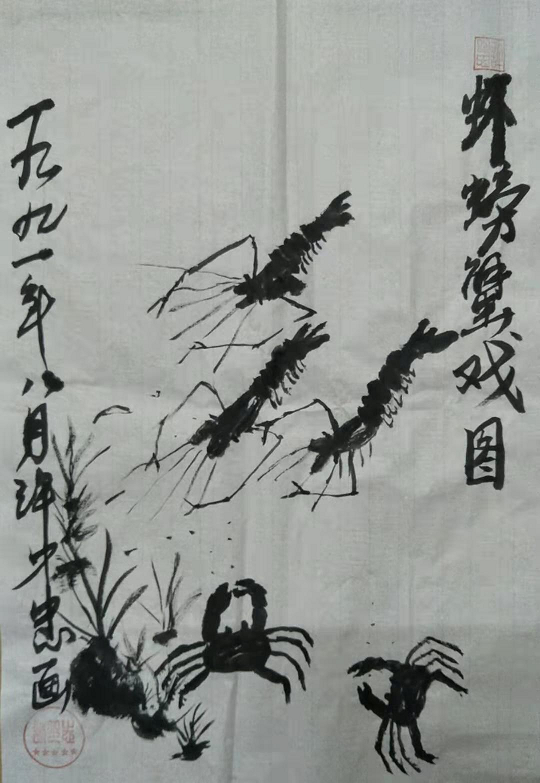 虾螃蟹戏图
一九九一年八月许中忠画